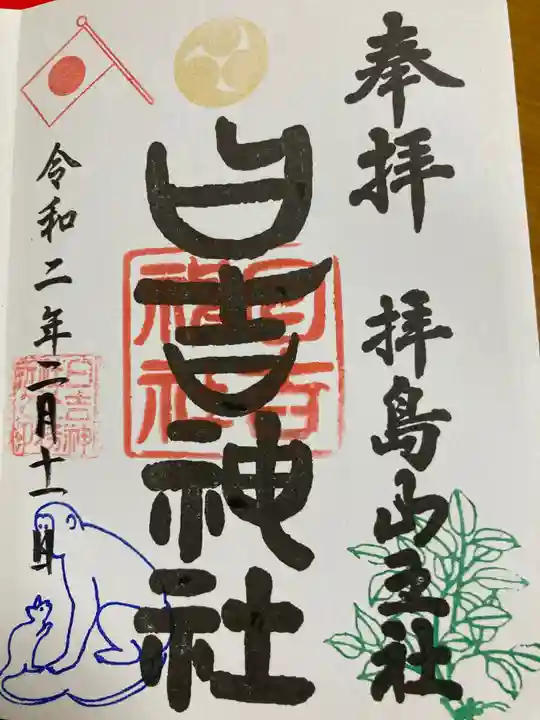 奉拝 拝島山王社
日吉神社
日吉神社
令和二年二月十一日